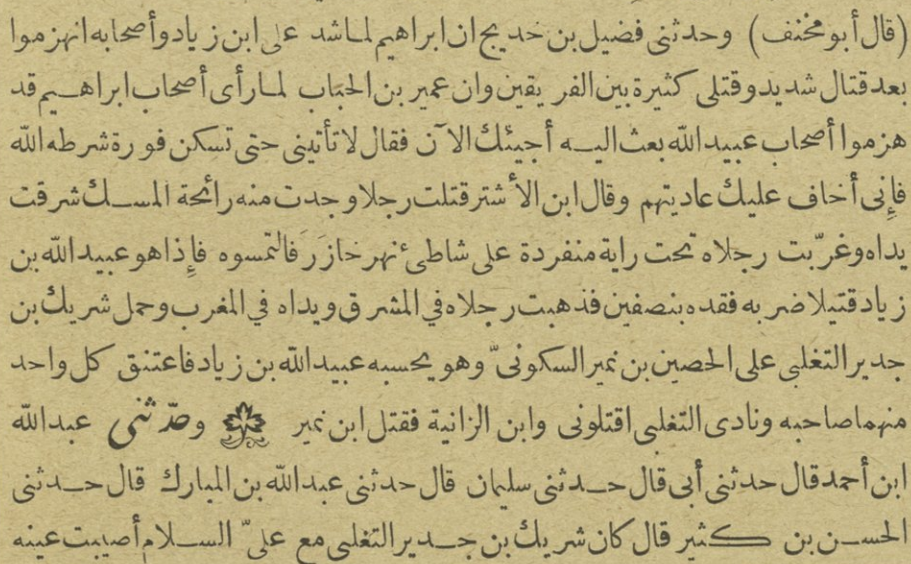 (قال أبو مخنف) وحدثنى فضيل بن خديج ان ابراهيم لما شد على ابن زياد وأصحابه انهزموا
بعد قتال شديد وقتلى كثيرة بين الفريقين وان عمير بن الحباب لما رأى أصحاب ابراهيم قد
هزموا أصحاب عبيد الله بعث اليه أجيئك الآن فقال لا تأتينى حتى تسكن فورة شرطه الله
فإنى أخاف عليك عاديتهم وقال ابن الأشتر قتلت رجلا وجدت منه رائحة المسك شرقت
يداه وغرّبت رجلاه تحت راية منفردة على شاطئ نهر خازَرَ فالتمسوه فإذا هو عبيد الله بن
زياد قتيلا ضربه فقده بنصفين فذهبت رجلاه في المشرق ويداه في المغرب وحمل شريك بن
جدير التغلبى على الحصين بن نمير السكونىّ وهو يحسبه عبيد الله بن زياد فاعتنق كل واحد
منهما صاحبه ونادى التغلبى اقتلونى وابن الزانية فقتل ابن نمير وحدّثنى عبدالله
ابن أحمد قال حدثنى أبى قال حدثنى سليمان قال حدثنى عبدالله بن المبارك قال حدثنى
الحسن بن كثير قال كان شريك بن جدير التغلبى مع علىّ السلام أصيبت عينه